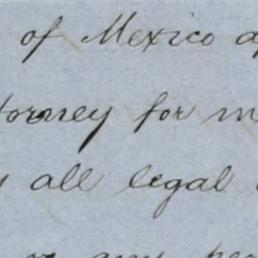 of Mexico
torney for m
all legal
or any